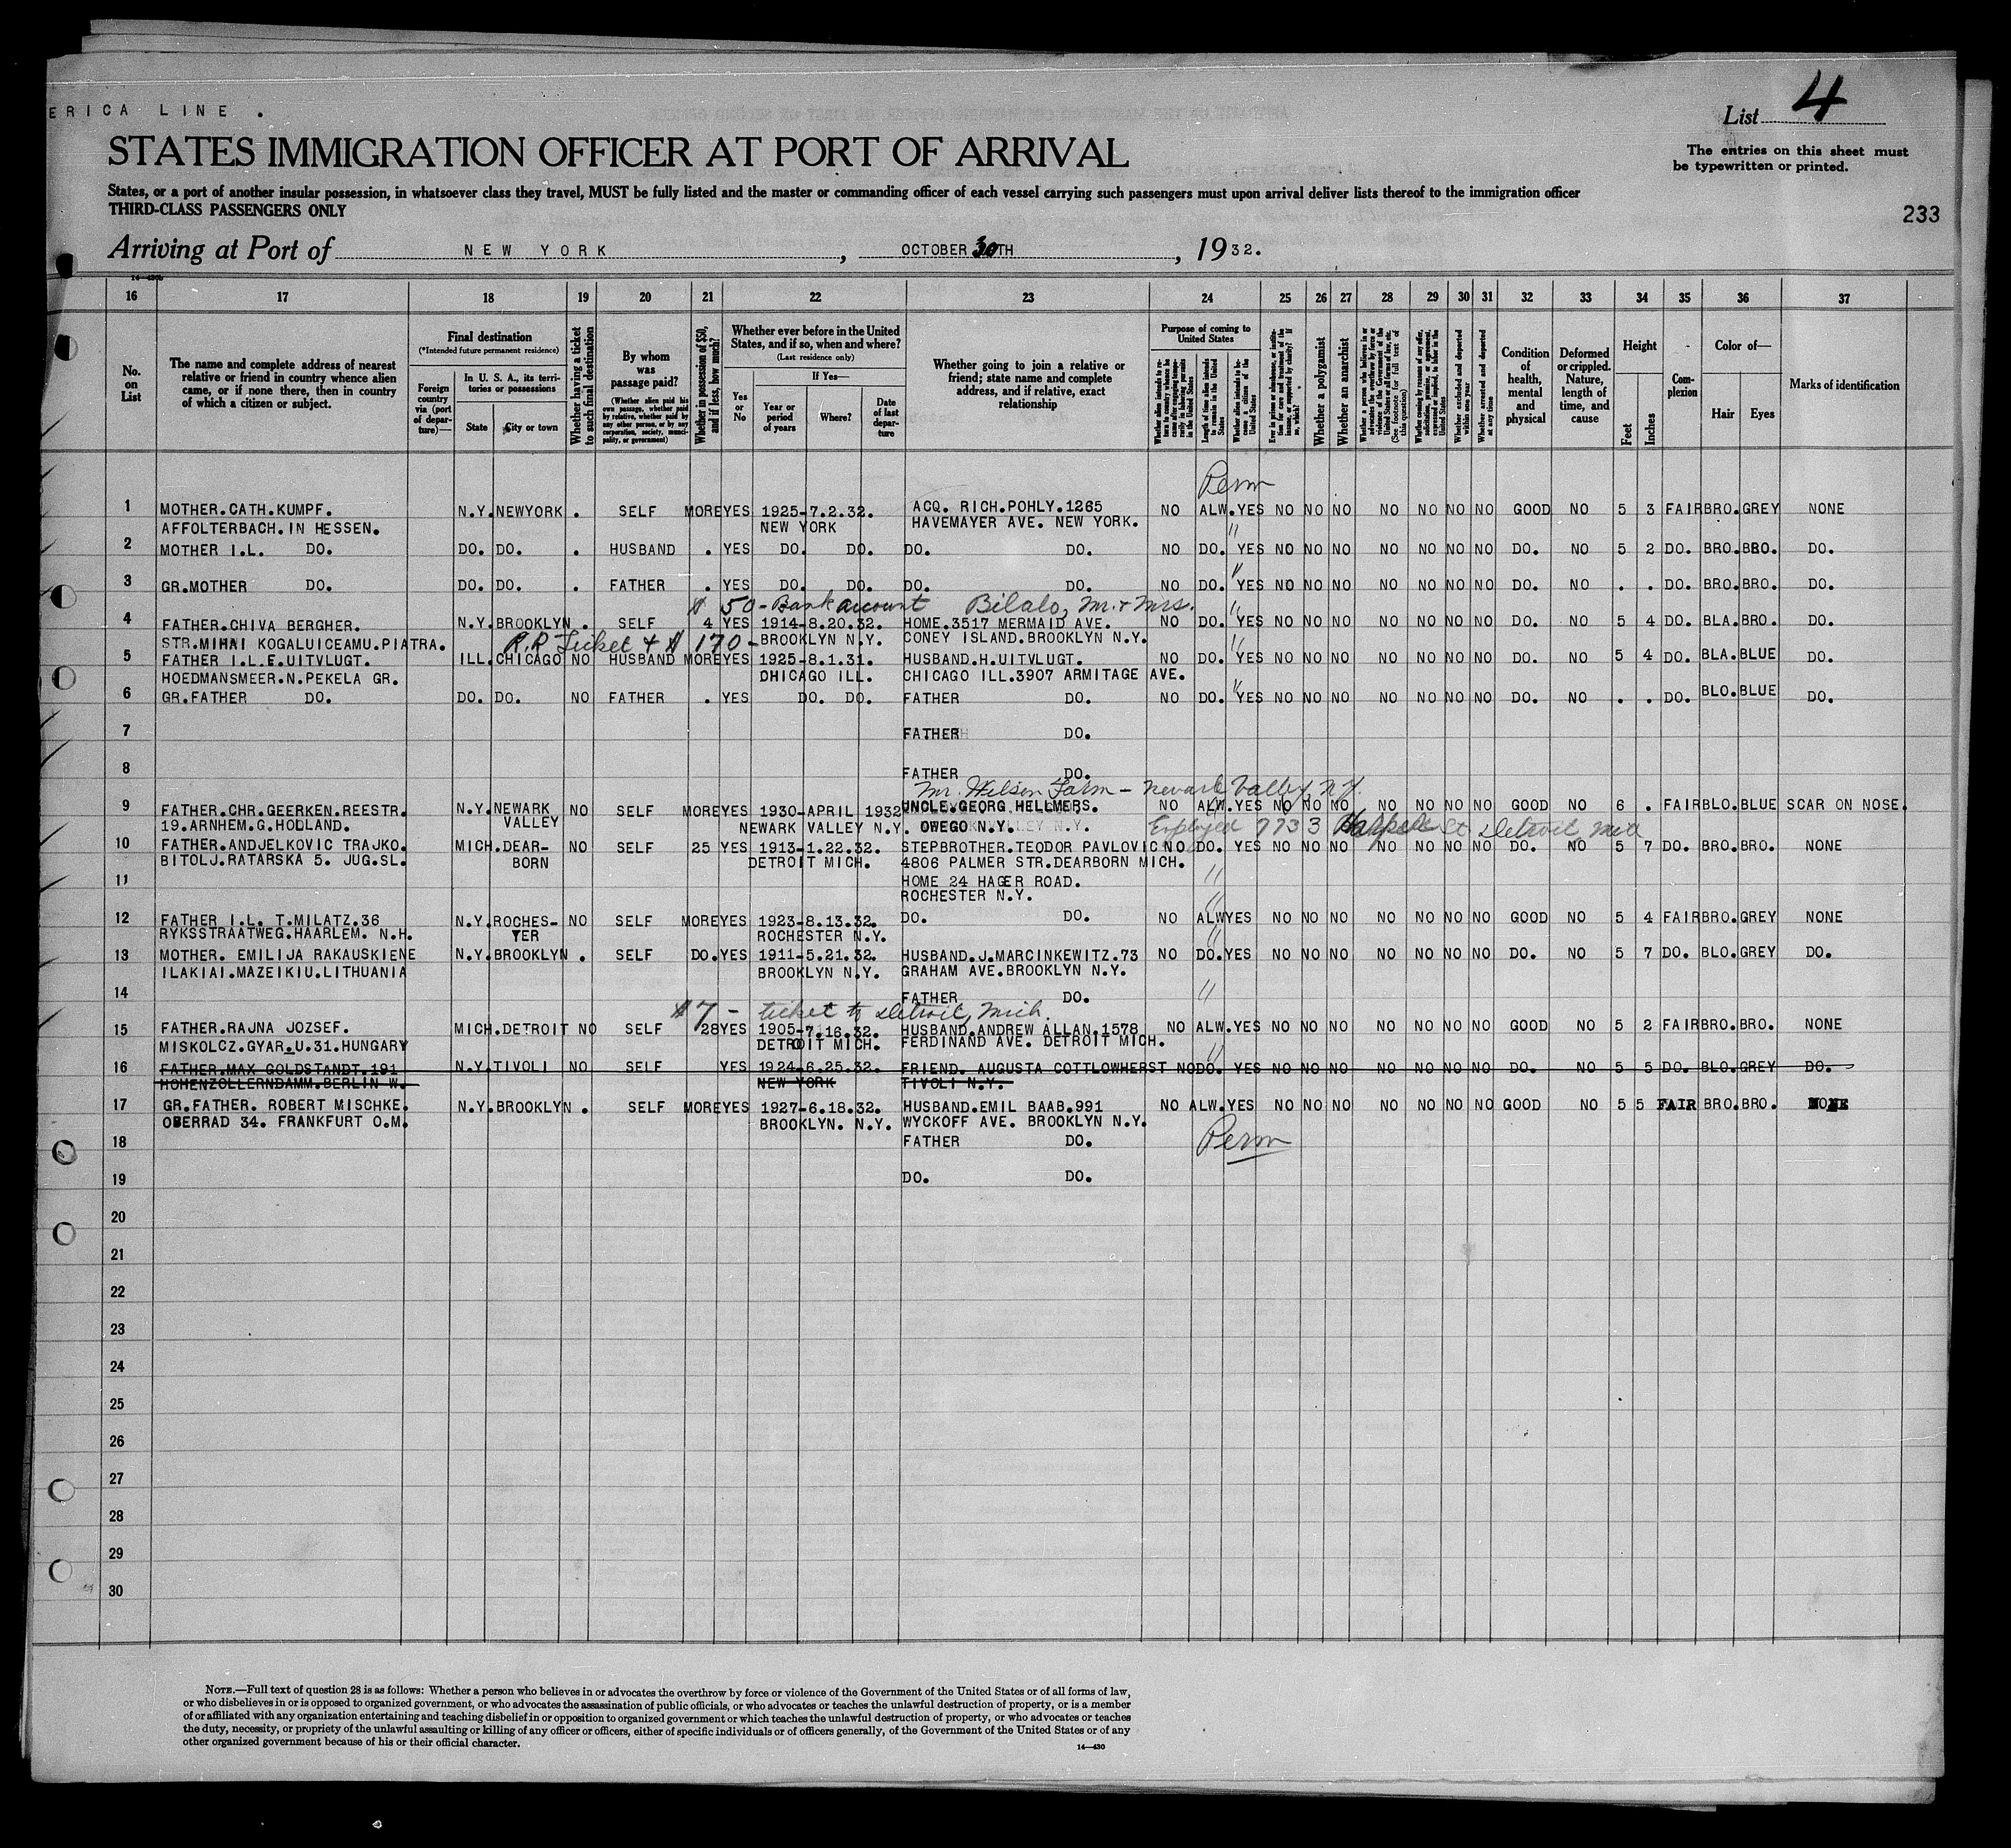 ERICA LINE .
List 4
STATES IMMIGRATION OFFICER AT PORT OF ARRIVAL
The entries on this sheet must
be typewritten or printed.
States, or a port of another insular possession, in whatsoever class they travel, MUST be fully listed and the master or commanding officer of each vessel carrying such passengers must upon arrival deliver lists thereof to the immigration officer
THIRD-CLASS PASSENGERS ONLY
233
Arriving at Port of NEW YORK, OCTOBER 30TH, 1932.
16 17 18 19 20 21 22 23 24 25 26 27 28 29 30 31 32 33 34 35 36 37
No. on List
The name and complete address of nearest relative or friend in country whence alien came, or if none there, then in country of which a citizen or subject.
Final destination
(*Intended future permanent residence)
Foreign country via (port of departure)—
In U. S. A., its territories or possessions
State
City or town
Whether having a ticket to such final destination
By whom was passage paid?
(Whether alien paid his own passage, whether paid by relative, whether paid by any other person, or by any corporation, society, municipality, or government)
Whether in possession of $50, and if less, how much?
Whether ever before in the United States, and if so, when and where?
(Last residence only)
Yes or No
If Yes—
Year or period of years
Where?
Date of last departure
Whether going to join a relative or friend; state name and complete address, and if relative, exact relationship
Purpose of coming to United States
Whether alien intends to return to country whence he came after engaging temporarily in laboring pursuits in the United States
Length of time alien intends to remain in the United States
Whether alien intends to become a citizen of the United States
Ever in prison or almshouse, or institution for care and treatment of the insane, or supported by charity? If so, which?
Whether a polygamist
Whether an anarchist
Whether a person who believes in or advocates the overthrow by force or violence of the Government of the United States or all forms of law, etc. (See footnote for full text of this question)
Whether coming by reason of any offer, solicitation, promise, or agreement, expressed or implied, to labor in the United States
Whether excluded and deported within one year
Whether arrested and deported at any time
Condition of health, mental and physical
Deformed or crippled. Nature, length of time, and cause
Height
Feet
Inches
Complexion
Color of—
Hair
Eyes
Marks of identification
Perm
1 MOTHER.CATH.KUMPF. N.Y. NEWYORK . SELF MORE YES 1925-7.2.32. ACQ. RICH.POHLY.1265 NO ALW. YES NO NO NO NO NO NO NO GOOD NO 5 3 FAIR BRO. GREY NONE
AFFOLTERBACH.IN HESSEN. NEW YORK HAVEMAYER AVE. NEW YORK.
2 MOTHER I.L. DO. DO. DO. . HUSBAND . YES DO. DO. DO. DO. NO DO. YES NO NO NO NO NO NO NO DO. NO 5 2 DO. BRO. BRO. DO.
3 GR.MOTHER DO. DO. DO. . FATHER . YES DO. DO. DO. DO. NO DO. YES NO NO NO NO NO NO NO DO. NO . . DO. BRO. BRO. DO.
$ 50- Bank account Bilalo, Mr. + Mrs.
4 FATHER.CHIVA BERGHER. N.Y. BROOKLYN . SELF 4 YES 1914-8.20.32. HOME.3517 MERMAID AVE. NO DO. YES NO NO NO NO NO NO NO DO. NO 5 4 DO. BLA. BRO. DO.
STR.MIHAI KOGALUICEAMU.PIATRA. BROOKLYN N.Y. CONEY ISLAND.BROOKLYN N.Y.
R.R Ticket + $ 170-
5 FATHER I.L.E.UITVLUGT. ILL. CHICAGO NO HUSBAND MORE YES 1925-8.1.31. HUSBAND.H.UITVLUGT. NO DO. YES NO NO NO NO NO NO NO DO. NO 5 4 DO. BLA. BLUE DO.
HOEDMANSMEER.N.PEKELA GR. DHICAGO ILL. CHICAGO ILL.3907 ARMITAGE AVE.
6 GR.FATHER DO. DO. DO. NO FATHER . YES DO. DO. FATHER DO. NO DO. YES NO NO NO NO NO NO NO DO. NO . . DO. BLO. BLUE DO.
7 FATHER DO.
8 FATHER DO.
Mr. Wilson Farm - Newark Valley, N.Y.
9 FATHER.CHR.GEERKEN.REESTR. N.Y. NEWARK NO SELF MORE YES 1930-APRIL 1932 UNCLE.GEORG HELLMERS. NO ALW. YES NO NO NO NO NO NO NO GOOD NO 6 . FAIR BLO. BLUE SCAR ON NOSE.
19.ARNHEM.G.HODLAND. VALLEY NEWARK VALLEY N.Y. OWEGO N.Y.
Employed 7733 St Detroit, Mich
10 FATHER.ANDJELKOVIC TRAJKO. MICH. DEAR- NO SELF 25 YES 1913-1.22.32. STEPBROTHER.TEODOR PAVLOVIC NO DO. YES NO NO NO NO NO NO NO DO. NO 5 7 DO. BRO. BRO. NONE
BITOLJ.RATARSKA 5. JUG.SL. BORN DETROIT MICH. 4806 PALMER STR.DEARBORN MICH.
11 HOME 24 HAGER ROAD.
ROCHESTER N.Y.
12 FATHER I.L. T.MILATZ.36 N.Y. ROCHES- NO SELF MORE YES 1923-8.13.32. DO. DO. NO ALW YES NO NO NO NO NO NO NO GOOD NO 5 4 FAIR BRO. GREY NONE
RYKSSTRAATWEG.HAARLEM. N.H. TER ROCHESTER N.Y.
13 MOTHER. EMILIJA RAKAUSKIENE N.Y. BROOKLYN . SELF DO. YES 1911-5.21.32. HUSBAND.J.MARCINKEWITZ.73 NO DO. YES NO NO NO NO NO NO NO DO. NO 5 7 DO. BLO. GREY DO.
ILAKIAI.MAZEIKIU.LITHUANIA BROOKLYN N.Y. GRAHAM AVE.BROOKLYN N.Y.
14 FATHER DO.
$7 - ticket to Detroit, Mich.
15 FATHER.RAJNA JOZSEF. MICH. DETROIT NO SELF 28 YES 1905-7.16.32. HUSBAND.ANDREW ALLAN.1578 NO ALW. YES NO NO NO NO NO NO NO GOOD NO 5 2 FAIR BRO. BRO. NONE
MISKOLCZ.GYAR.U.31.HUNGARY DETROIT MICH. FERDINAND AVE. DETROIT MICH.
16 FATHER.MAX GOLDSTANDT.191 N.Y. TIVOLI NO SELF YES 1924-6.25.32. FRIEND. AUGUSTA COTTLOWHERST NO DO. YES NO NO NO NO NO NO NO DO. NO 5 5 DO. BLO. GREY DO.
HOHENZOLLERNDAMM.BERLIN W. NEW YORK TIVOLI N.Y.
17 GR.FATHER. ROBERT MISCHKE. N.Y. BROOKLYN . SELF MORE YES 1927-6.18.32. HUSBAND.EMIL BAAB.991 NO ALW. YES NO NO NO NO NO NO NO GOOD NO 5 5 FAIR BRO. BRO. NONE
OBERRAD 34. FRANKFURT O.M. BROOKLYN. N.Y. WYCKOFF AVE. BROOKLYN N.Y.
18 FATHER DO. Perm
19 DO. DO.
20
21
22
23
24
25
26
27
28
29
30
NOTE.—Full text of question 28 is as follows: Whether a person who believes in or advocates the overthrow by force or violence of the Government of the United States or of all forms of law,
or who disbelieves in or is opposed to organized government, or who advocates the assassination of public officials, or who advocates or teaches the unlawful destruction of property, or is a member
of or affiliated with any organization entertaining and teaching disbelief in or opposition to organized government or which teaches the unlawful destruction of property, or who advocates or teaches
the duty, necessity, or propriety of the unlawful assaulting or killing of any officer or officers, either of specific individuals or of officers generally, of the Government of the United States or of any
other organized government because of his or their official character.
14—430